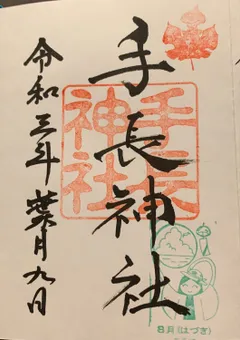 手長神社
手長
神社
令和三年 葉月九日
8月(はづき)